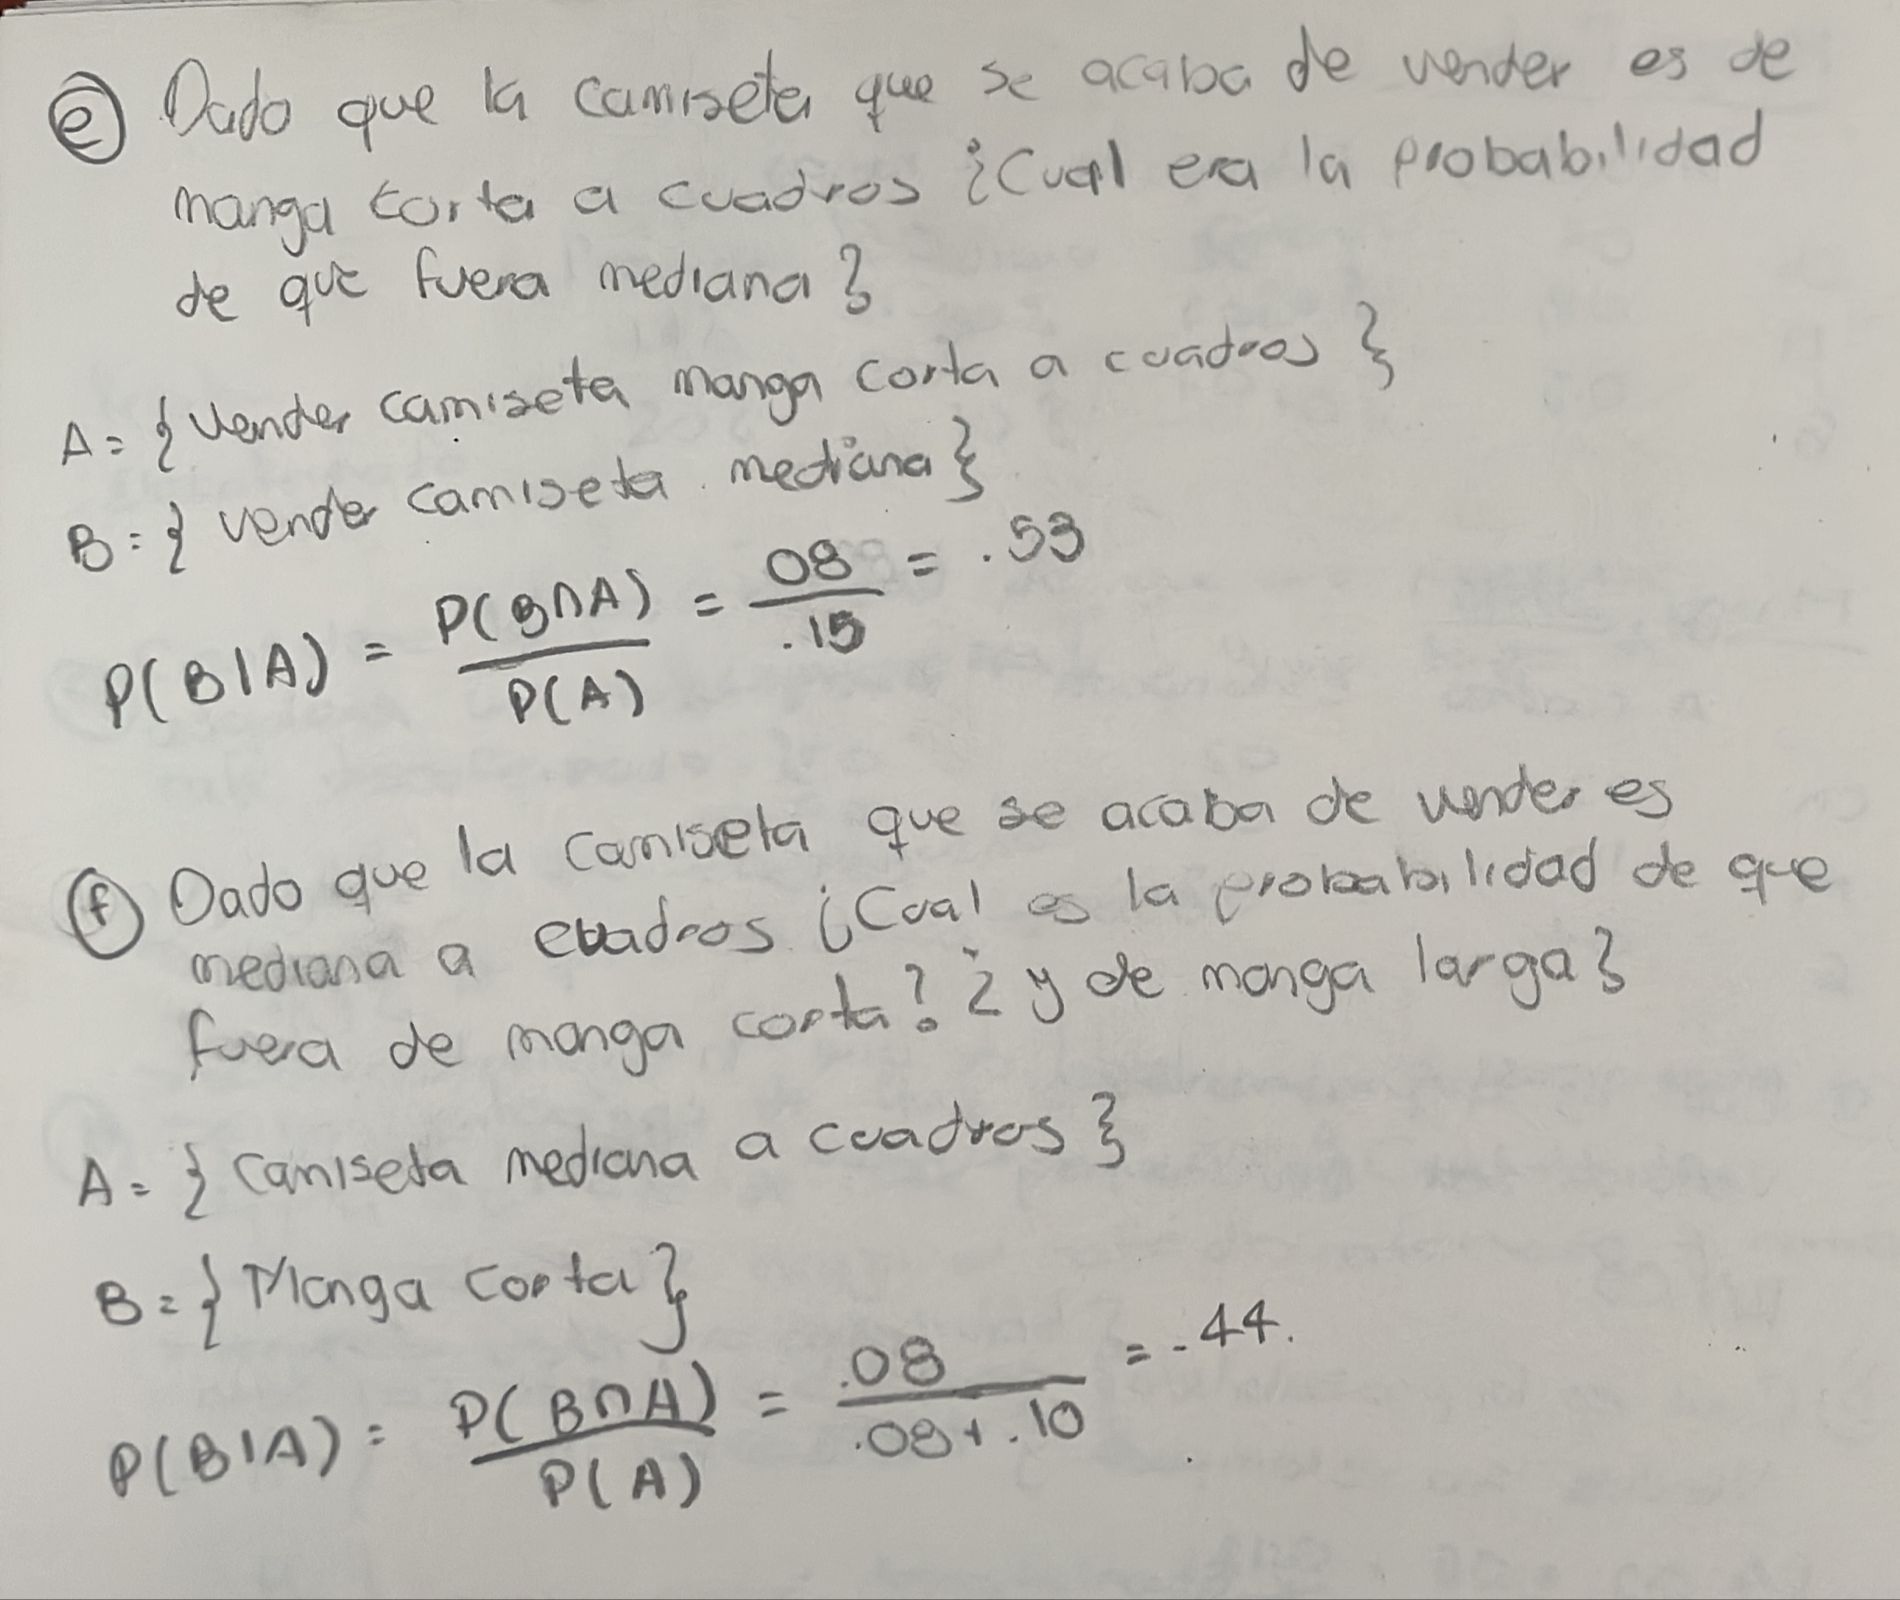 e) Dado que la camiseta que se acaba de vender es de
manga corta a cuadros ¿Cual era la probabilidad
de que fuera mediana?
A = {Vender camiseta manga corta a cuadros}
B = {vender camiseta mediana}
P(B|A) = P(B∩A) / P(A) = 08 / .15 = .53
f) Dado que la camiseta que se acaba de vender es
mediana a cuadros ¿Cual es la probabilidad de que
fuera de manga corta? ¿y de manga larga?
A = {Camiseta mediana a cuadros}
B = {Manga corta}
P(B|A) = P(B∩A) / P(A) = .08 / .08+.10 = .44.